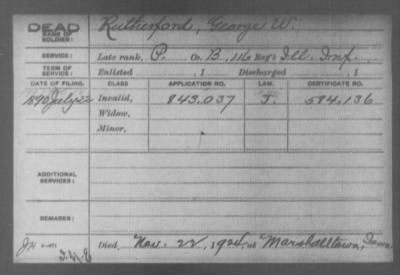 DEAD Rutherford, George W.
NAME OF SOLDIER:
SERVICE: Late rank, P. Co. B, 116 Reg't Ill. Inf.
TERM OF SERVICE: Enlisted , 1 Discharged , 1
DATE OF FILING. CLASS APPLICATION NO. LAW. CERTIFICATE NO.
1890 July 22 Invalid, 843.037 J. 584.136
Widow,
Minor,
ADDITIONAL SERVICES:
REMARKS:
Died Nov. 22, 1924, at Marshalltown, Iowa.